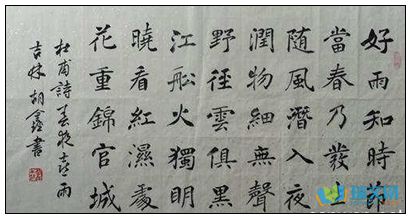 好雨知時節
當春乃發生
隨風潛入夜
潤物細無聲
野徑雲俱黑
江舩火獨明
曉看紅濕處
花重錦官城
杜甫詩春夜喜雨
吉林胡鑫書